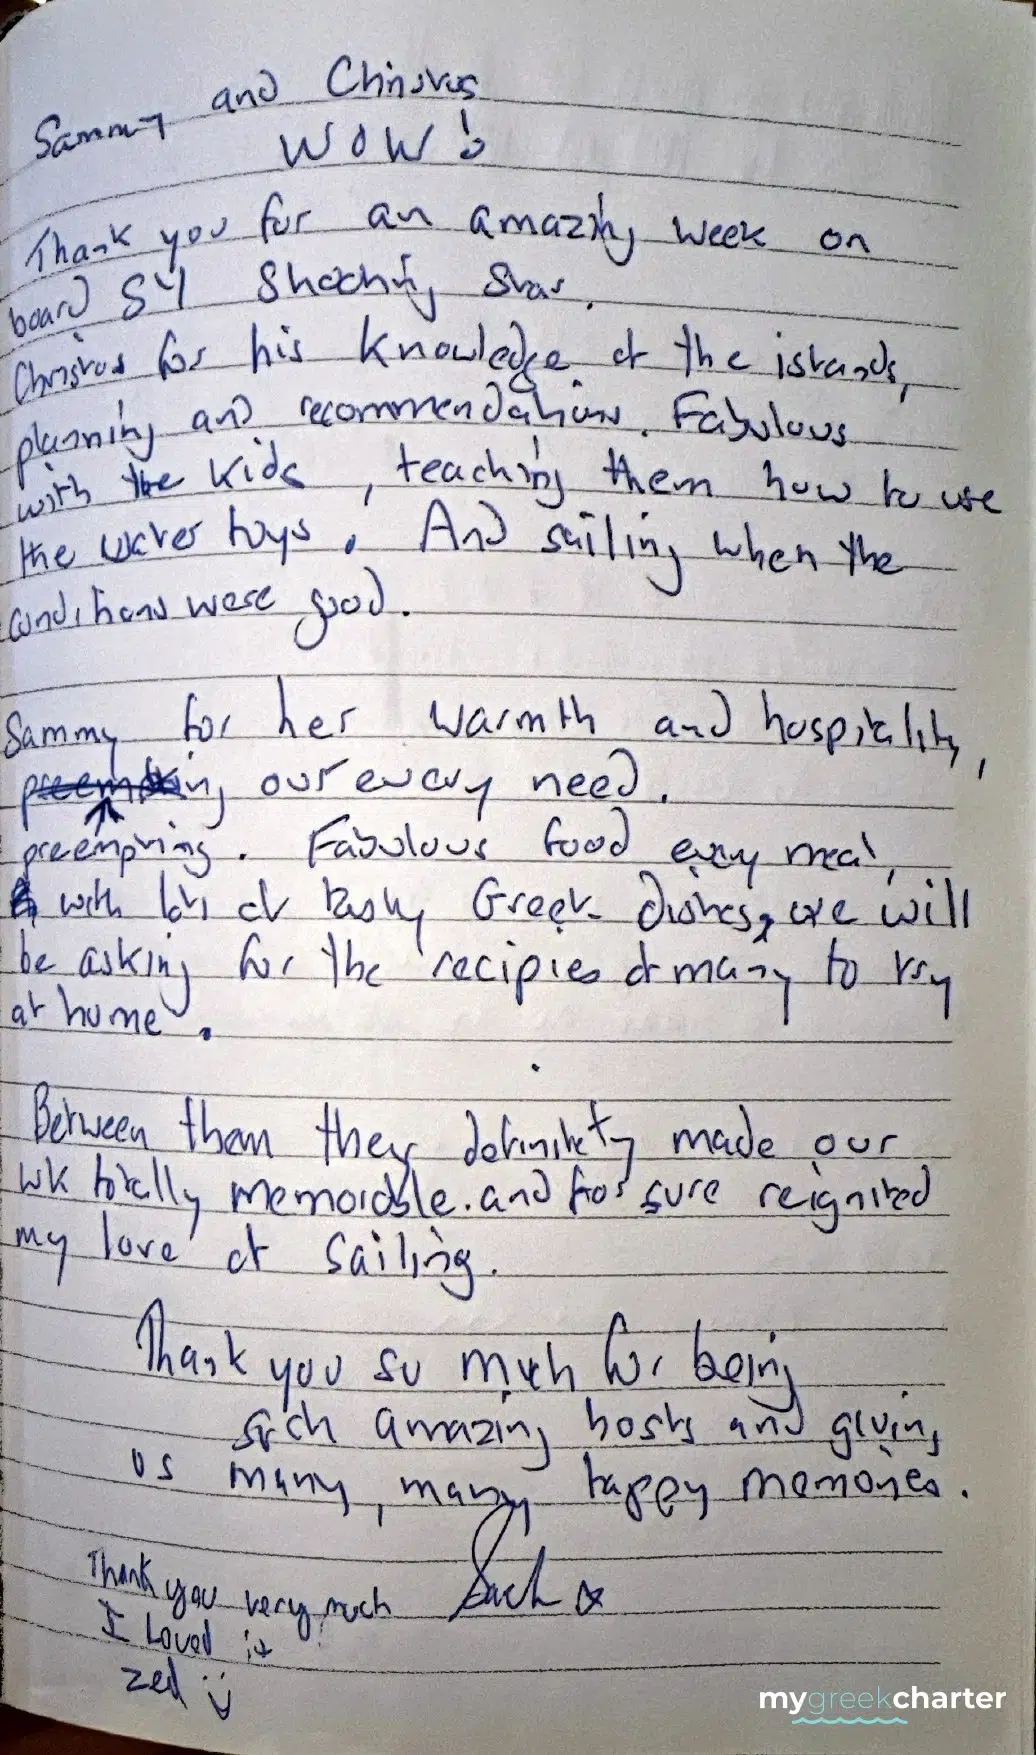 Sammy and Christos
WOW!
Thank you for an amazing week on
board SY Shooting Star.
Christos for his knowledge of the islands,
planning and recommendations. Fabulous
with the kids, teaching them how to use
the water toys. And sailing when the
conditions were good.
Sammy for her warmth and hospitality,
preempting our every need.
preempting. Fabulous food every meal,
with lots of tasty Greek dishes, we will
be asking for the recipies of many to try
at home.
Between them they definitety made our
wk totally memorable. and for sure reignited
my love of sailing.
Thank you so much for being
such amazing hosts and giving
us many, many happy memories.
Thank you very much
I Loved it
Zed
mygreekcharter